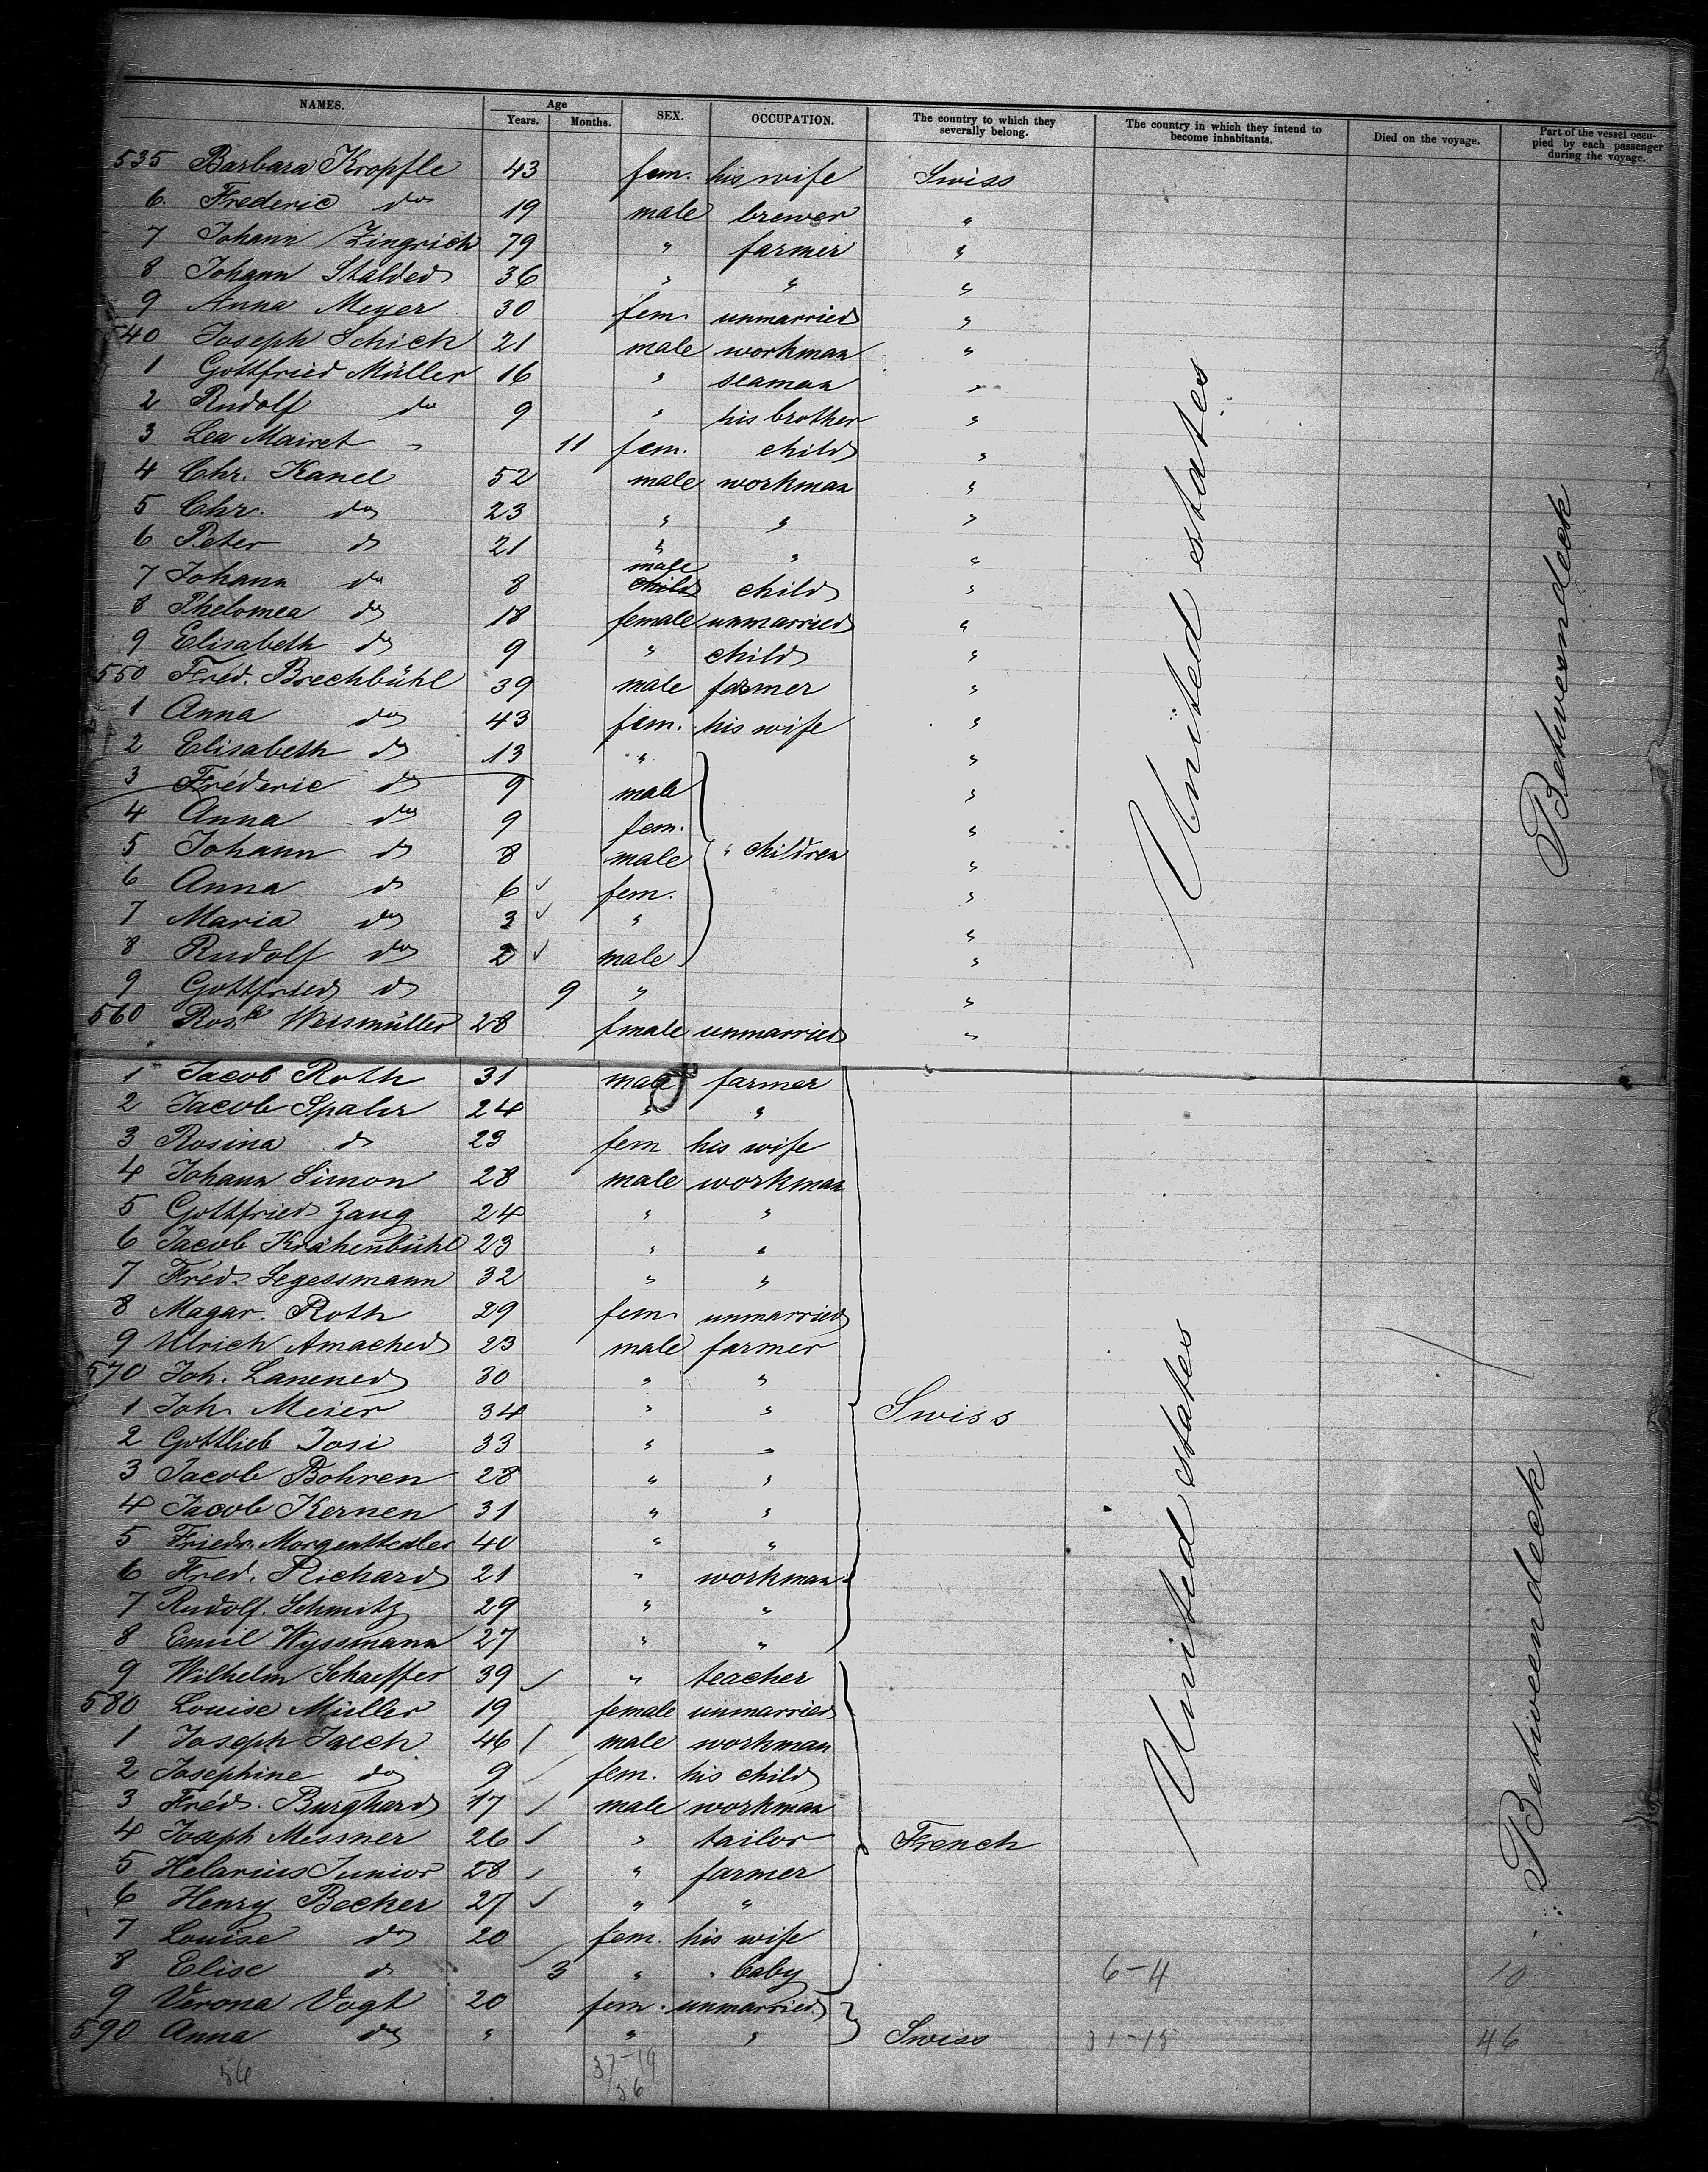 NAMES. Age Years. Months. SEX. OCCUPATION. The country to which they severally belong. The country in which they intend to become inhabitants. Died on the voyage. Part of the vessel occupied by each passenger during the voyage.
535 Barbara Kropfle 43 fem. his wife Swiss
6 Frederic do 19 male brewer "
7 Johann Zingrich 79 " farmer "
8 Johann Stalded 36 " " "
9 Anna Meyer 30 fem. unmarried "
540 Joseph Schick 21 male workman "
1 Gottfried Müller 16 " seaman "
2 Rudolf do 9 " his brother "
3 Lea Mairet 11 fem. child "
4 Chr. Kanel 52 male workman "
5 Chr. do 23 " " "
6 Peter do 21 " " "
7 Johann do 8 child male child "
8 Phelomea do 18 female unmarried "
9 Elisabeth do 9 " child "
550 Fred. Brechbühl 39 male farmer "
1 Anna do 43 fem. his wife "
2 Elisabeth do 13 " "
3 Fréderic do 9 male "
4 Anna do 9 fem. "
5 Johann do 8 male " children "
6 Anna do 6 fem. "
7 Maria do 3 " "
8 Rudolf do 2 male "
9 Gottfried do 9 " "
560 Rosa Weismüller 28 fmale unmarried "
United states
Betweendeck
1 Jacob Roth 31 male farmer
2 Jacob Spahr 24 " "
3 Rosina do 23 fem his wife
4 Johann Simon 28 male workman
5 Gottfried Zaug 24 " "
6 Jacob Krähenbühl 23 " "
7 Fréd. Segessmann 32 " "
8 Magar. Roth 29 fem. unmarried
9 Ulrich Amached 23 male farmer
570 Joh. Lanened 30 " "
1 Joh. Meier 34 " " Swiss
2 Gottlieb Josi 33 " "
3 Jacob Bohren 28 " "
4 Jacob Kernen 31 " "
5 Friedr. Morgentheler 40 " "
6 Fred. Richard 21 " workman
7 Rudolf. Schmitz 29 " "
8 Emil Wyssmann 27 " "
9 Wilhelm Schaeffer 39 " teacher
580 Louise Müller 19 female unmarried
1 Joseph Jaech 46 male workman
2 Josephine do 9 fem. his child
3 Fréd. Burghard 17 male workman
4 Joseph Messner 26 " tailor French
5 Helarius Junior 28 " farmer
6 Henry Becker 27 " "
7 Louise do 20 fem. his wife
8 Elise do 3 " " baby 6-4 10
9 Verona Vogt 20 fem. unmarried
590 Anna do " " " Swiss 31-15 46
United states
Betweendeck
56 37-19
56